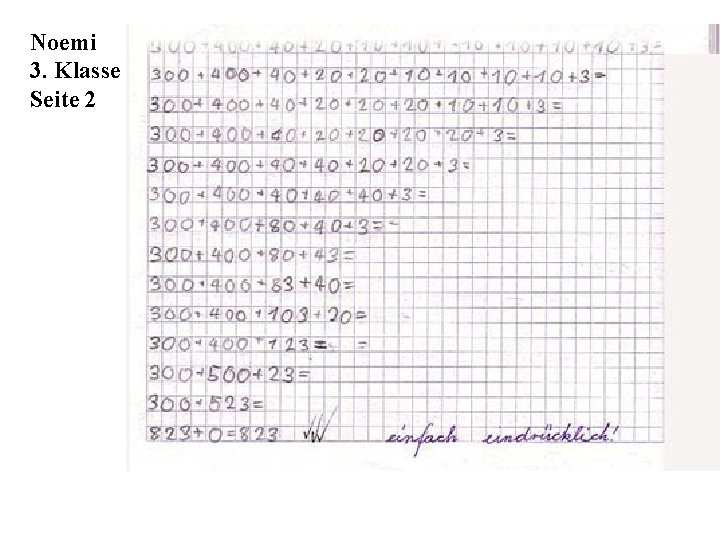 Noemi
3. Klasse
Seite 2
300+400+40+20+20+10+10+10+10+3=
300+400+40+20+20+20+10+10+3=
300+400+40+20+20+20+20+3=
300+400+40+40+20+20+3=
300+400+40+40+40+3=
300+400+80+40+3=
300+400+80+43=
300+400+83+40=
300+400+103+20=
300+400+123= =
300+500+23=
300+523=
823+0=823 einfach eindrücklich!